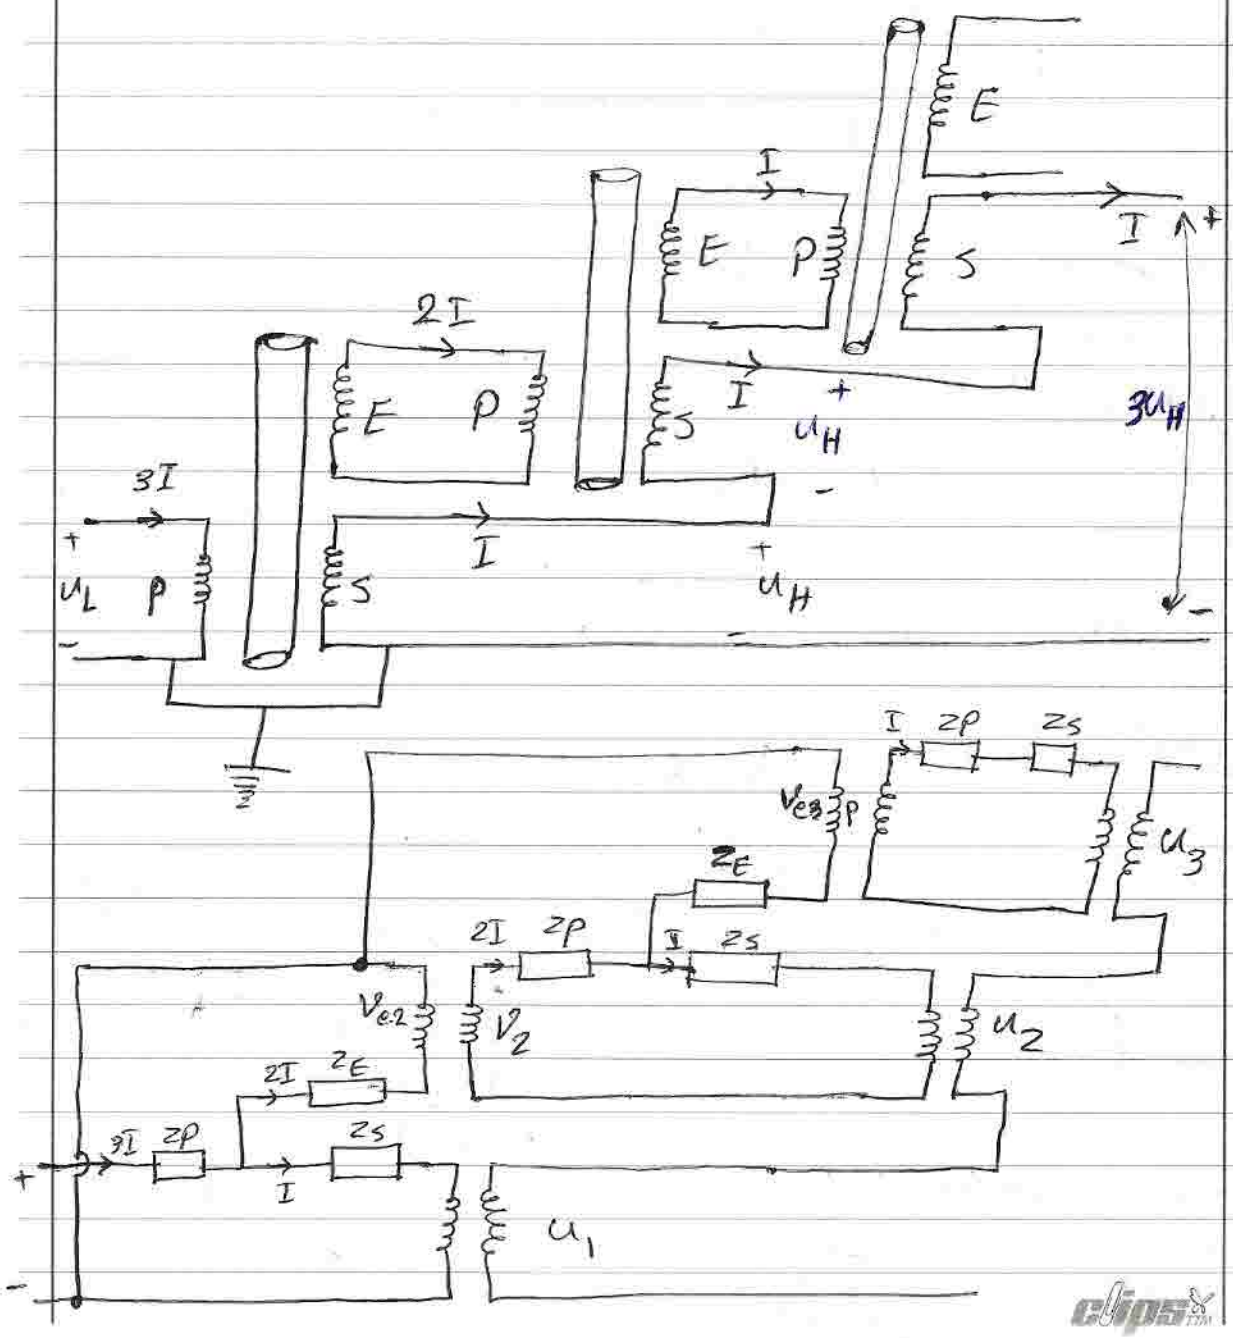 E
I
I +
E P S
2I
I + 3U_H
U_H
E P S -
3I
I +
+ U_H
U_L P S
- - -
I Zp Zs
V_e3 P U_3
Z_E
2I Zp I Zs
V_e2 V_2 U_2
2I Z_E
3I Zp Zs
+ I
U_1
-
clips